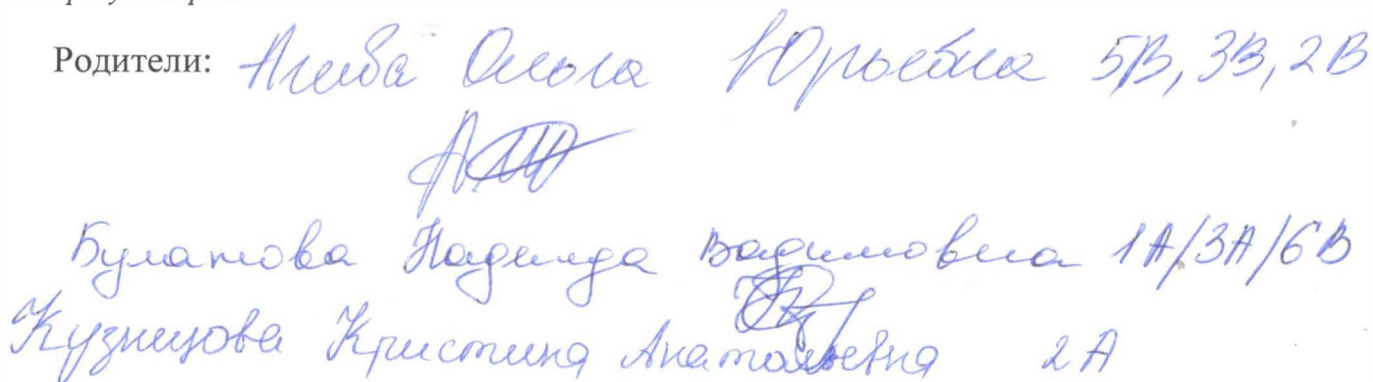 Родители: Агиба Ольга Юрьевна 5В, 3В, 2В
Булатова Надежда Вадимовна 1А/3А/6В
Кузнецова Кристина Анатольевна 2А